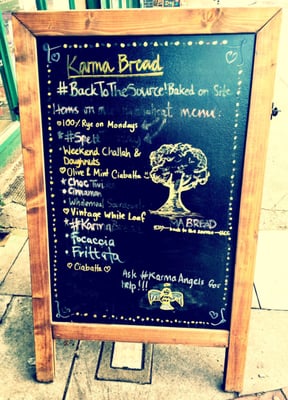 Karma Bread
#BackToTheSource! Baked on Site
Items on menu:
100% Rye on Mondays
#Spelt
Weekend Challah &
Doughnuts
Olive & Mint Ciabatta
* Choc
* Cinnamon
Wholemeal
Vintage White Loaf
* #Karma
Focaccia
Frittata
Ciabatta
MA BREAD
Ask #KarmaAngels for
help!!!